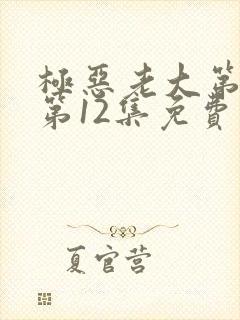 極惡老大第
第12集免費
夏官营